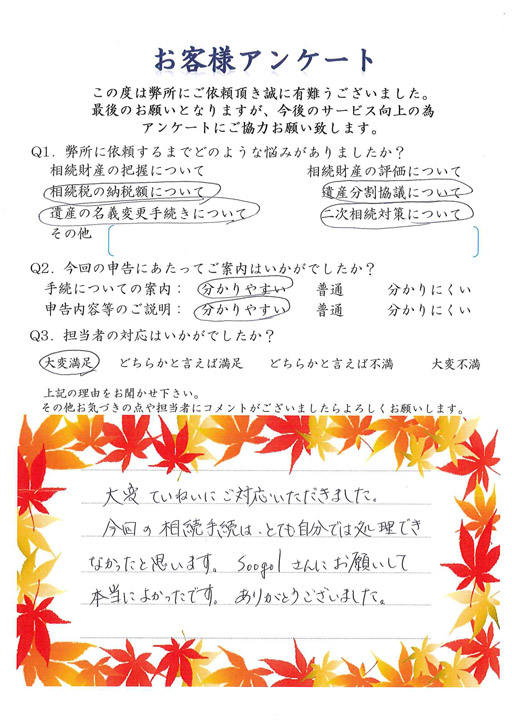 お客様アンケート
この度は弊所にご依頼頂き誠に有難うございました。
最後のお願いとなりますが、今後のサービス向上の為
アンケートにご協力お願い致します。
Q1. 弊所に依頼するまでどのような悩みがありましたか？
相続財産の把握について 相続財産の評価について
相続税の納税額について 遺産分割協議について
遺産の名義変更手続きについて 二次相続対策について
その他
Q2. 今回の申告にあたってご案内はいかがでしたか？
手続についての案内： 分かりやすい 普通 分かりにくい
申告内容等のご説明： 分かりやすい 普通 分かりにくい
Q3. 担当者の対応はいかがでしたか？
大変満足 どちらかと言えば満足 どちらかと言えば不満 大変不満
上記の理由をお聞かせ下さい。
その他お気づきの点や担当者にコメントがございましたらよろしくお願いします。
大変ていねいにご対応いただきました。
今回の相続手続は、とても自分では処理でき
なかったと思います。Soogolさんにお願いして
本当によかったです。ありがとうございました。